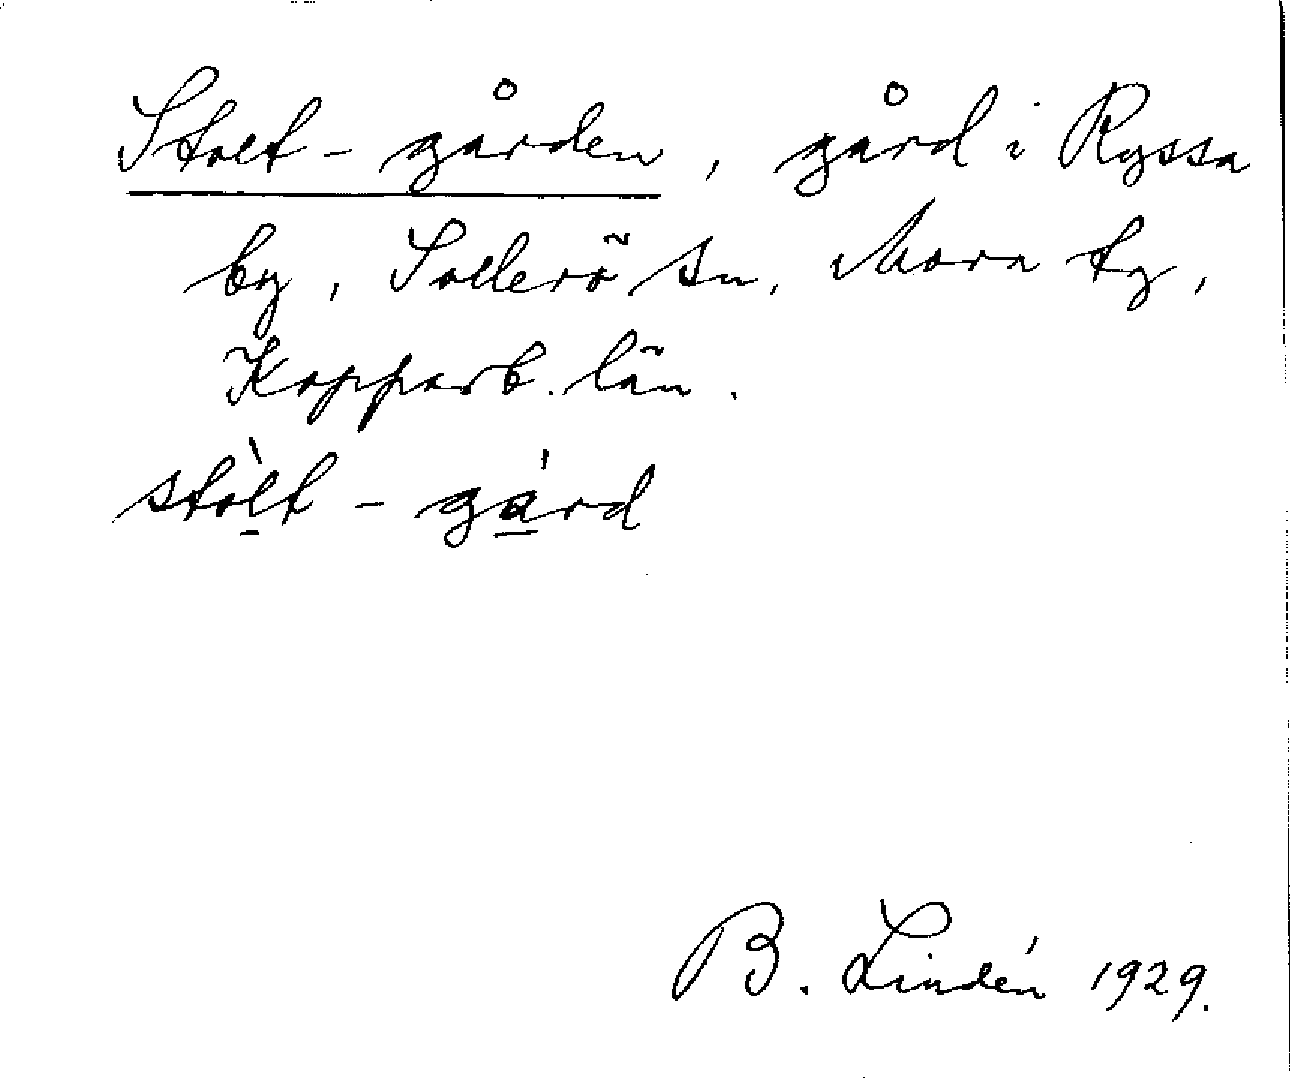 Stolt-gården, gård i Ryssa
by, Sollerö sn, Mora tg,
Kopparb. län.
stòlt-gárd
B. Lindén 1929.